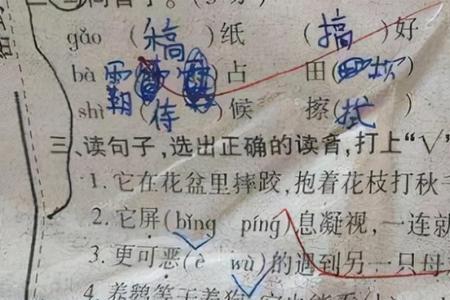 gǎo (稿)纸 (搞)好
bà (霸)占 田(坝)
shì (侍)候 擦(拭)
三、读句子,选出正确的读音,打上"√"
1.它在花盆里摔跤,抱着花枝打秋
2.它屏(bǐng píng)息凝视,一连就
3.更可恶(è wù)的遇到另一只母
4.养鹅等于养狗,